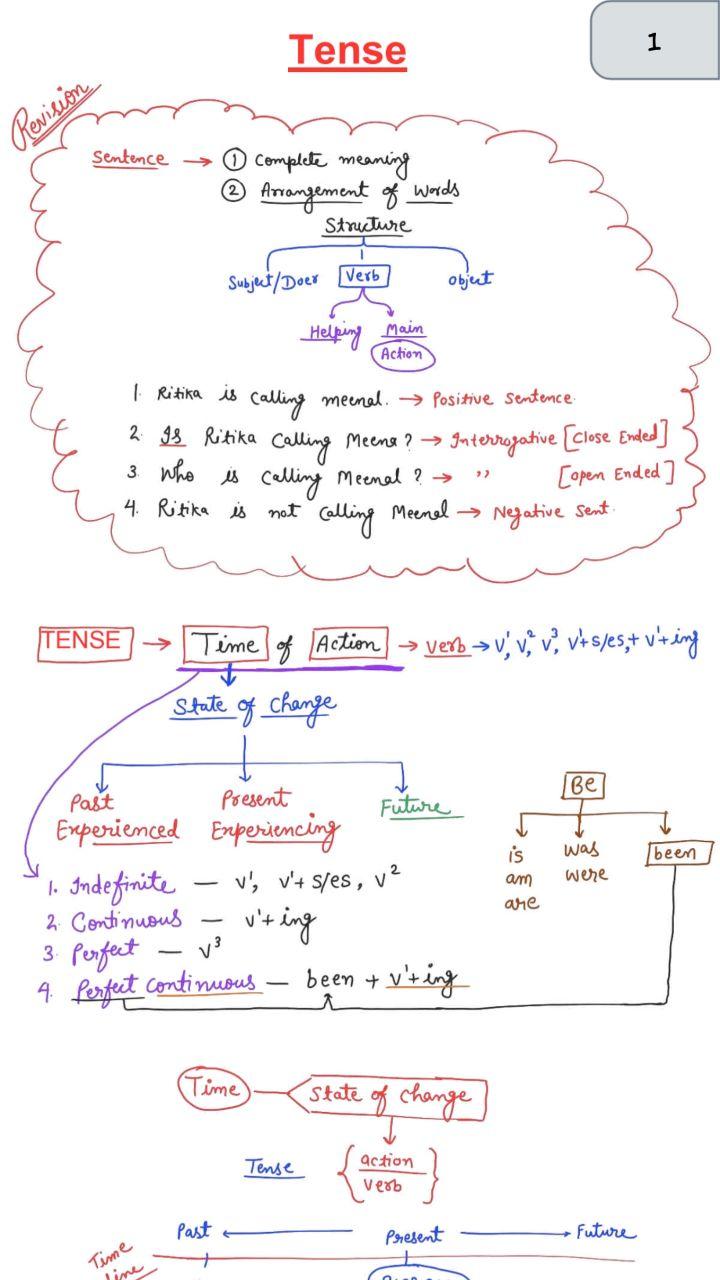 Tense
1
Revision
Sentence → ① Complete meaning
② Arrangement of words
Structure
Subject/Doer Verb Object
Helping Main
Action
1. Ritika is calling meenal. → Positive sentence.
2. Is Ritika Calling Meena? → Interrogative [Close Ended]
3. Who is Calling Meenal? → ,, [open Ended]
4. Ritika is not Calling Meenal → Negative Sent.
TENSE → Time of Action → verb → v¹, v², v³, v¹+s/es, + v¹+ing
State of Change
Past Present Future
Experienced Experiencing
Be
is was been
am were
are
1. Indefinite — v¹, v¹+s/es, v²
2. Continuous — v¹+ing
3. Perfect — v³
4. Perfect continuous — been + v¹+ing
Time State of change
Tense { action
verb }
Past ← Present → Future
Time
line